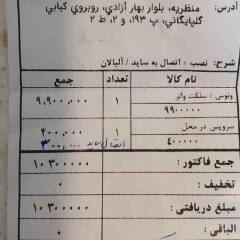 آدرس: منظریه، بلوار بهار آزادي، روبروي کبابي
گلپایگاني، پ ۱۹۳، و ۲، ط ۲
شرح: نصب + اتصال به ساید / آلیالان
نام کالا تعداد جمع
ونوس / سلکت واتر ۱ ۹,۹۰۰,۰۰۰
۹۹۰۰۰۰۰
سرویس در محل ۱ ۴۰۰,۰۰۰
۴۰۰۰۰۰ اتصال ساید ۳۰۰,۰۰۰
جمع فاکتور: ۱۰۳۰۰۰۰۰
تخفیف: ۰
مبلغ دریافتي: ۱۰۳۰۰۰۰۰
الباقي: ۰